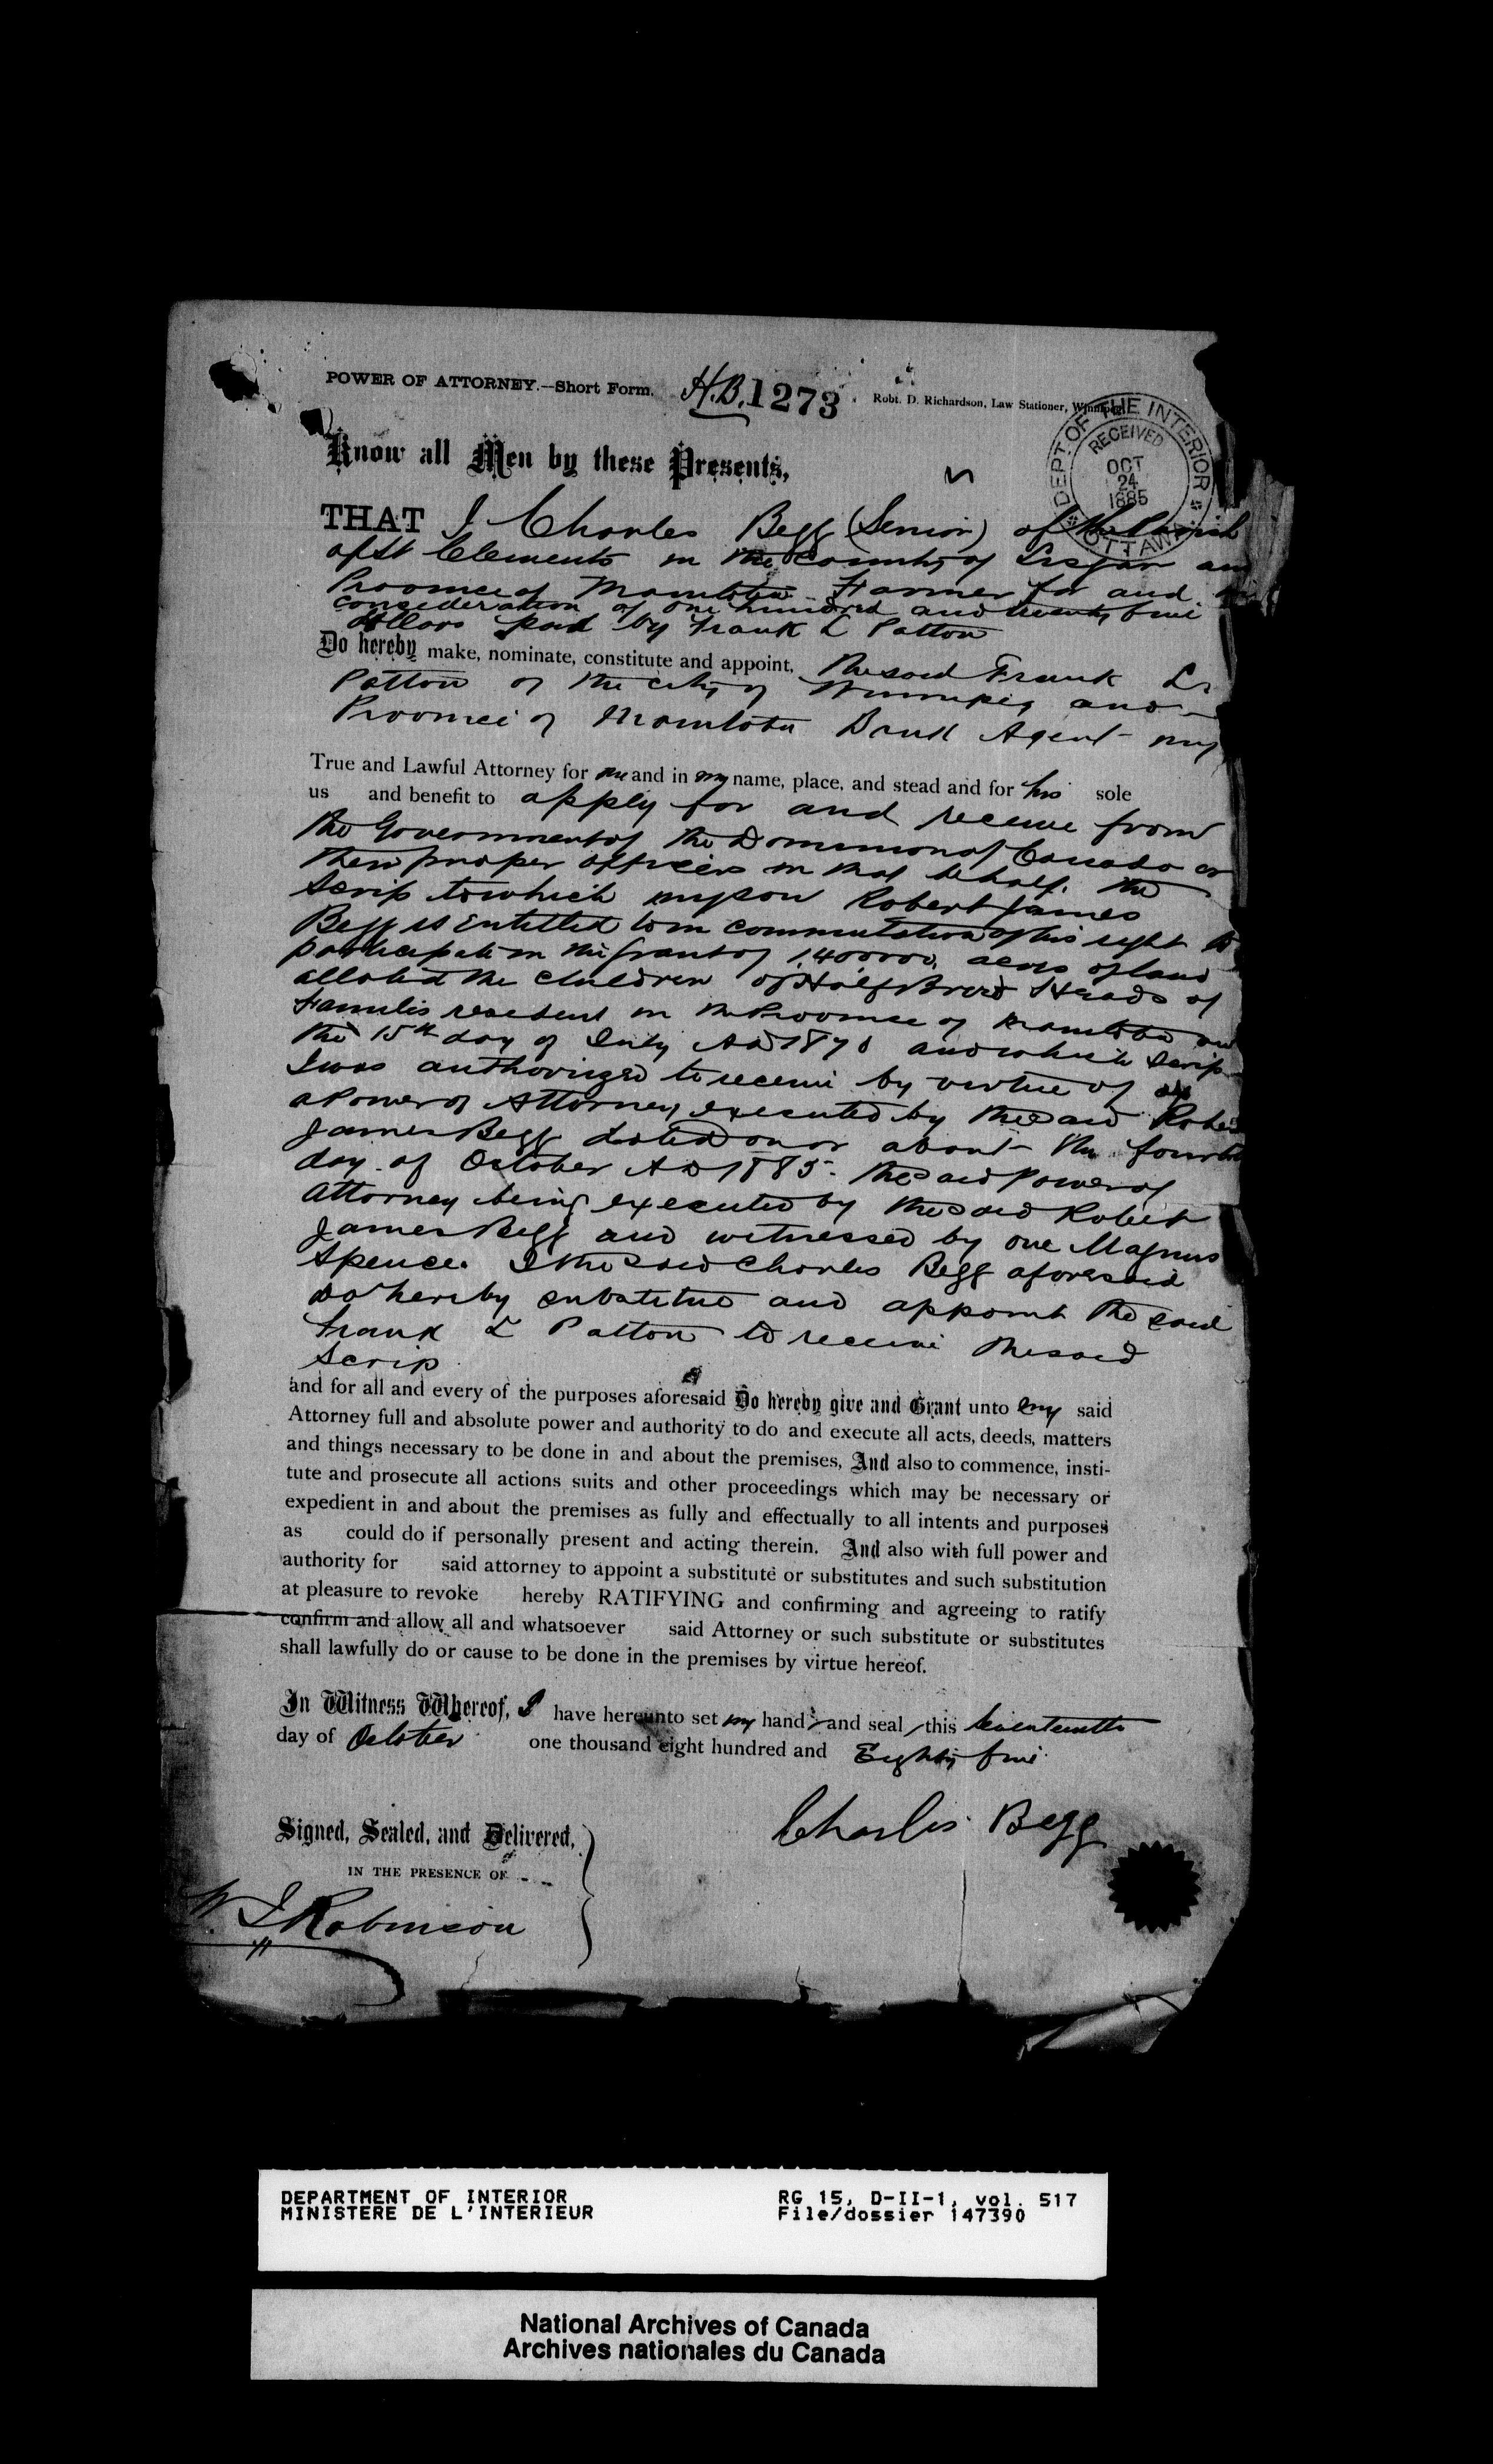 POWER OF ATTORNEY.—Short Form. H.B. 1273 Robt. D. Richardson, Law Stationer, Winnipeg
DEPT. OF THE INTERIOR
RECEIVED
OCT
24
1885
OTTAWA
Know all Men by these Presents,
THAT I Charles Begg (Senior) of the Parish
of St Clements in the County of Lisgar and
Province of Manitoba Farmer for and in
consideration of one hundred and twenty five
dollars paid by Frank L Patton
Do hereby make, nominate, constitute and appoint, the said Frank L
Patton of the city of Winnipeg and
Province of Manitoba Agent my
True and Lawful Attorney for me and in my name, place, and stead and for his sole
us and benefit to apply for and receive from
the Government of the Dominion of Canada or
their proper officers in that behalf. the
Scrip to which my son Robert James
Begg is entitled to in commutation of his right to
participate in the grant of 1,400,000, acres of land
alloted the children of Half Breed Heads of
Families resident in the Province of Manitoba on
the 15th day of July AD 1870 and which Scrip
I was authorized to receive by virtue of
a Power of Attorney executed by the said Robert
James Begg dated on or about the fourth
day of October AD 1885. the said Power of
Attorney being executed by the said Robert
James Begg and witnessed by one Magnus
Spence. I the said Charles Begg aforesaid
do hereby substitue and appoint the said
Frank L Patton to receive the said
Scrip
and for all and every of the purposes aforesaid Do hereby give and Grant unto my said
Attorney full and absolute power and authority to do and execute all acts, deeds, matters
and things necessary to be done in and about the premises, And also to commence, insti-
tute and prosecute all actions suits and other proceedings which may be necessary or
expedient in and about the premises as fully and effectually to all intents and purposes
as could do if personally present and acting therein. And also with full power and
authority for said attorney to appoint a substitute or substitutes and such substitution
at pleasure to revoke hereby RATIFYING and confirming and agreeing to ratify
confirm and allow all and whatsoever said Attorney or such substitute or substitutes
shall lawfully do or cause to be done in the premises by virtue hereof.
In Witness Whereof, I have hereunto set my hand and seal this Seventeenth
day of October one thousand eight hundred and Eighty five
Charles Begg
Signed, Sealed, and Delivered,
IN THE PRESENCE OF
Robinson
DEPARTMENT OF INTERIOR RG 15, D-II-1, vol. 517
MINISTERE DE L'INTERIEUR File/dossier 147390
National Archives of Canada
Archives nationales du Canada